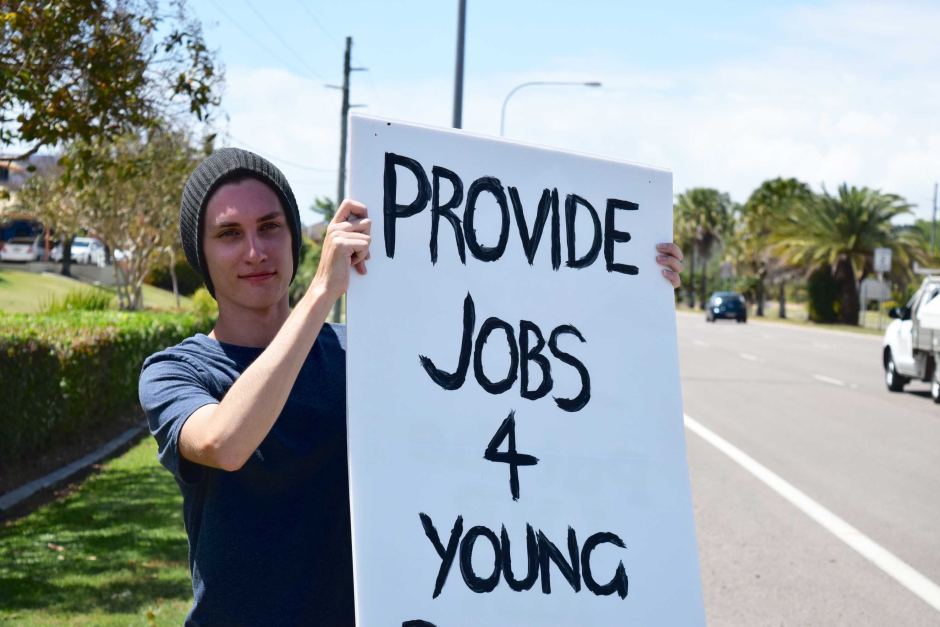 PROVIDE
JOBS
4
YOUNG